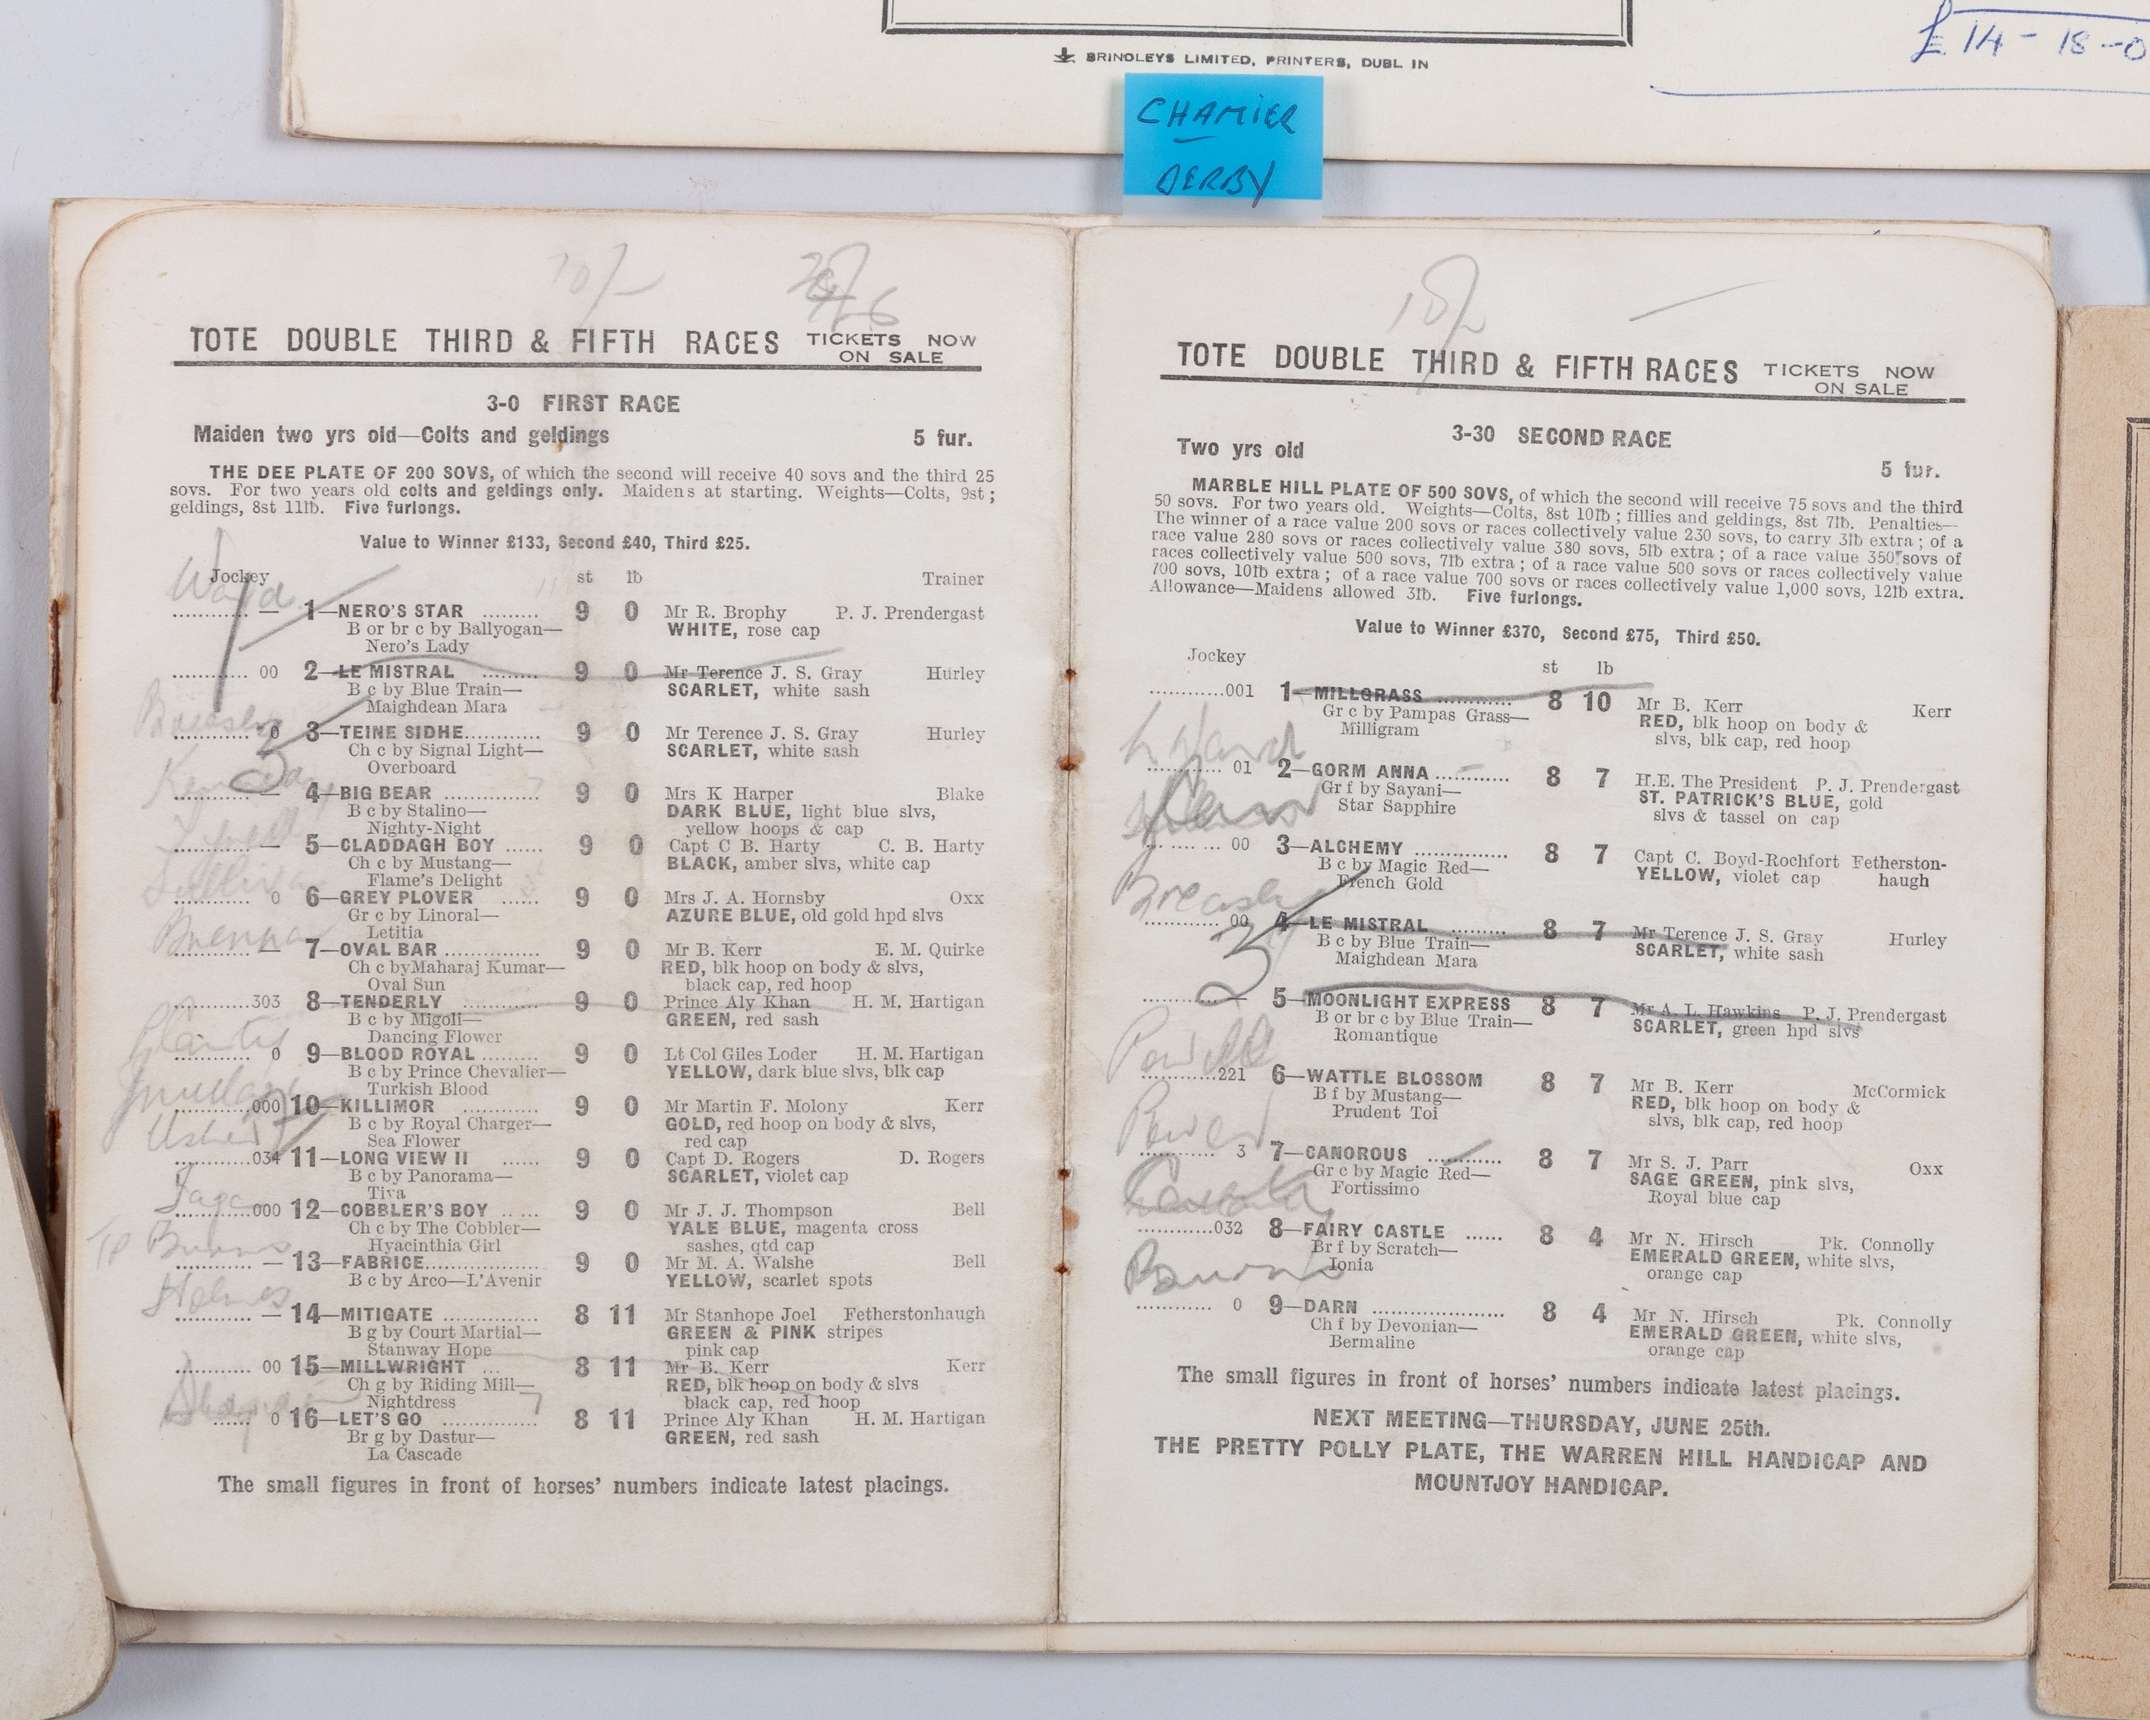 BRINDLEYS LIMITED, PRINTERS, DUBLIN
£14-18-0
CHAMIER
DERBY
10/-
TOTE DOUBLE THIRD & FIFTH RACES TICKETS NOW
ON SALE
3-0 FIRST RACE
Maiden two yrs old—Colts and geldings 5 fur.
THE DEE PLATE OF 200 SOVS, of which the second will receive 40 sovs and the third 25
sovs. For two years old colts and geldings only. Maidens at starting. Weights—Colts, 9st;
geldings, 8st 11lb. Five furlongs.
Value to Winner £133, Second £40, Third £25.
Jockey st lb Trainer
Ward
............ — 1—NERO'S STAR ......... 9 0 Mr R. Brophy P. J. Prendergast
B or br c by Ballyogan— WHITE, rose cap
Nero's Lady
............ 00 2—LE MISTRAL ......... 9 0 Mr Terence J. S. Gray Hurley
B c by Blue Train— SCARLET, white sash
Maighdean Mara
Breasley
............ 0 3—TEINE SIDHE............ 9 0 Mr Terence J. S. Gray Hurley
Ch c by Signal Light— SCARLET, white sash
Overboard
3
............ — 4—BIG BEAR ............... 9 0 Mrs K Harper Blake
B c by Stalino— DARK BLUE, light blue slvs,
Nighty-Night yellow hoops & cap
............ — 5—CLADDAGH BOY ...... 9 0 Capt C B. Harty C. B. Harty
Ch c by Mustang— BLACK, amber slvs, white cap
Flame's Delight
............ 0 6—GREY PLOVER ...... 9 0 Mrs J. A. Hornsby Oxx
Gr c by Linoral— AZURE BLUE, old gold hpd slvs
Letitia
Brennan
............ — 7—OVAL BAR ............... 9 0 Mr B. Kerr E. M. Quirke
Ch c byMaharaj Kumar— RED, blk hoop on body & slvs,
Oval Sun black cap, red hoop
............303 8—TENDERLY ............ 9 0 Prince Aly Khan H. M. Hartigan
B c by Migoli— GREEN, red sash
Dancing Flower
............ 0 9—BLOOD ROYAL ......... 9 0 Lt Col Giles Loder H. M. Hartigan
B c by Prince Chevalier— YELLOW, dark blue slvs, blk cap
Turkish Blood
............000 10—KILLIMOR ............ 9 0 Mr Martin F. Molony Kerr
B c by Royal Charger— GOLD, red hoop on body & slvs,
Sea Flower red cap
............034 11—LONG VIEW II ...... 9 0 Capt D. Rogers D. Rogers
B c by Panorama— SCARLET, violet cap
Tiva
............000 12—COBBLER'S BOY ..... 9 0 Mr J. J. Thompson Bell
Ch c by The Cobbler— YALE BLUE, magenta cross
Hyacinthia Girl sashes, qtd cap
TP Burns
............ — 13—FABRICE.................. 9 0 Mr M. A. Walshe Bell
B c by Arco—L'Avenir YELLOW, scarlet spots
Holmes
............ — 14—MITIGATE ............... 8 11 Mr Stanhope Joel Fetherstonhaugh
B g by Court Martial— GREEN & PINK stripes
Stanway Hope pink cap
............ 00 15—MILLWRIGHT ... 8 11 Mr B. Kerr Kerr
Ch g by Riding Mill— RED, blk hoop on body & slvs
Nightdress black cap, red hoop
...... 0 16—LET'S GO ............... 8 11 Prince Aly Khan H. M. Hartigan
Br g by Dastur— GREEN, red sash
La Cascade
The small figures in front of horses' numbers indicate latest placings.
10/-
TOTE DOUBLE THIRD & FIFTH RACES TICKETS NOW
ON SALE
3-30 SECOND RACE
Two yrs old 5 fur.
MARBLE HILL PLATE OF 500 SOVS, of which the second will receive 75 sovs and the third
50 sovs. For two years old. Weights—Colts, 8st 10lb; fillies and geldings, 8st 7lb. Penalties—
The winner of a race value 200 sovs or races collectively value 230 sovs, to carry 3lb extra; of a
race value 280 sovs or races collectively value 380 sovs, 5lb extra; of a race value 350 sovs of
races collectively value 500 sovs, 7lb extra; of a race value 500 sovs or races collectively value
700 sovs, 10lb extra; of a race value 700 sovs or races collectively value 1,000 sovs, 12lb extra.
Allowance—Maidens allowed 3lb. Five furlongs.
Value to Winner £370, Second £75, Third £50.
Jockey st lb
............001 1—MILLGRASS ............ 8 10 Mr B. Kerr Kerr
Gr c by Pampas Grass— RED, blk hoop on body &
Milligram slvs, blk cap, red hoop
L Ward
............ 01 2—GORM ANNA ............ 8 7 H.E. The President P. J. Prendergast
Gr f by Sayani— ST. PATRICK'S BLUE, gold
Star Sapphire slvs & tassel on cap
............ 00 3—ALCHEMY ............... 8 7 Capt C. Boyd-Rochfort Fetherston-
B c by Magic Red— YELLOW, violet cap haugh
French Gold
Breasley
............ 00 4—LE MISTRAL ......... 8 7 Mr Terence J. S. Gray Hurley
B c by Blue Train— SCARLET, white sash
Maighdean Mara
3
............ — 5—MOONLIGHT EXPRESS 8 7 Mr A. L. Hawkins P. J. Prendergast
B or br c by Blue Train— SCARLET, green hpd slvs
Romantique
Powell
............221 6—WATTLE BLOSSOM 8 7 Mr B. Kerr McCormick
B f by Mustang— RED, blk hoop on body &
Prudent Toi slvs, blk cap, red hoop
Power
............ 3 7—CANOROUS ............ 8 7 Mr S. J. Parr Oxx
Gr c by Magic Red— SAGE GREEN, pink slvs,
Fortissimo Royal blue cap
............032 8—FAIRY CASTLE ...... 8 4 Mr N. Hirsch Pk. Connolly
Br f by Scratch— EMERALD GREEN, white slvs,
Ionia orange cap
Burns
............ 0 9—DARN ..................... 8 4 Mr N. Hirsch Pk. Connolly
Ch f by Devonian— EMERALD GREEN, white slvs,
Bermaline orange cap
The small figures in front of horses' numbers indicate latest placings.
NEXT MEETING—THURSDAY, JUNE 25th.
THE PRETTY POLLY PLATE, THE WARREN HILL HANDICAP AND
MOUNTJOY HANDICAP.